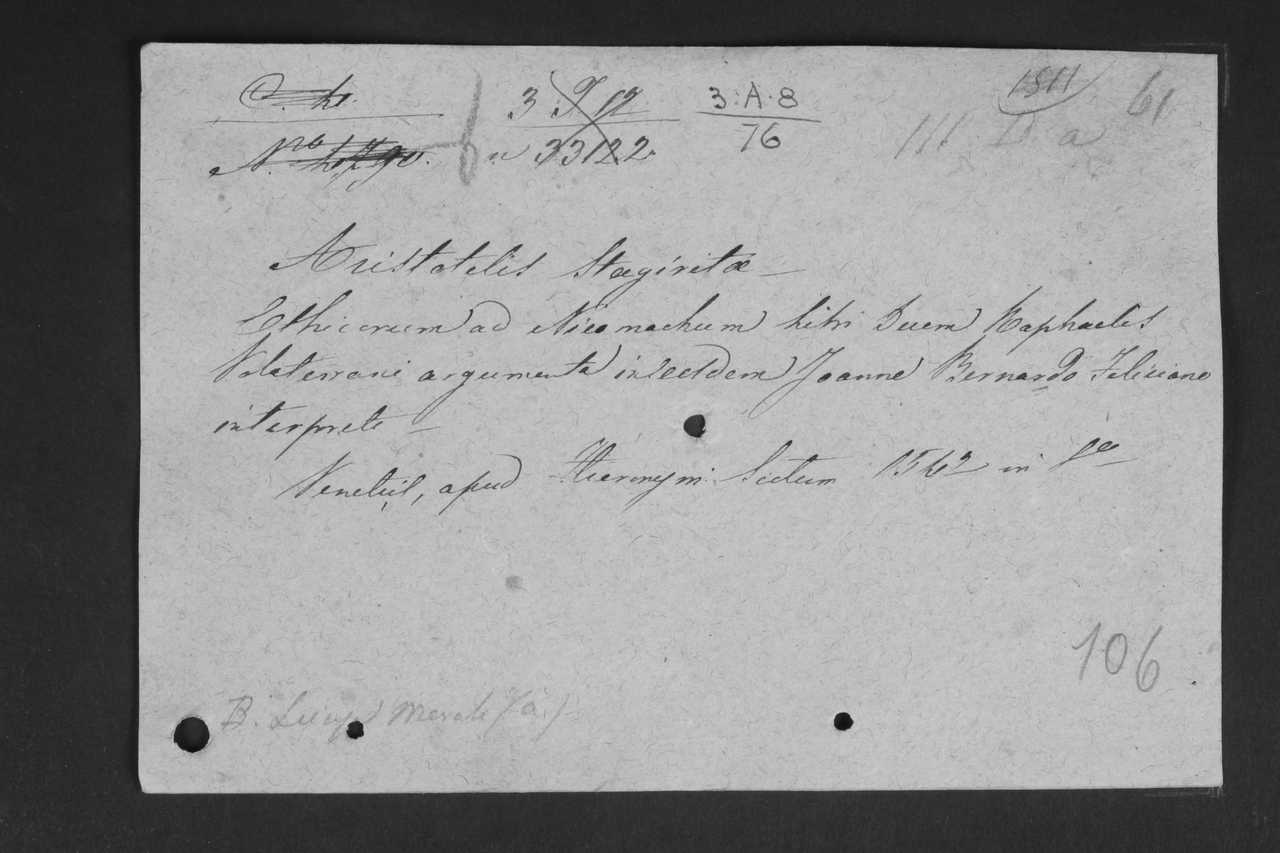 3:A·8
76
1511
61
III a
n 33122
Aristotelis Stagiritæ —
Ethicorum ad Nicomachum libri Decem Raphaelis
Volaterrani argumenta in eosdem Joanne Bernardo Feliciano
interprete —
Venetiis, apud Hieronymi Scotum 1562 in fo
106
B.